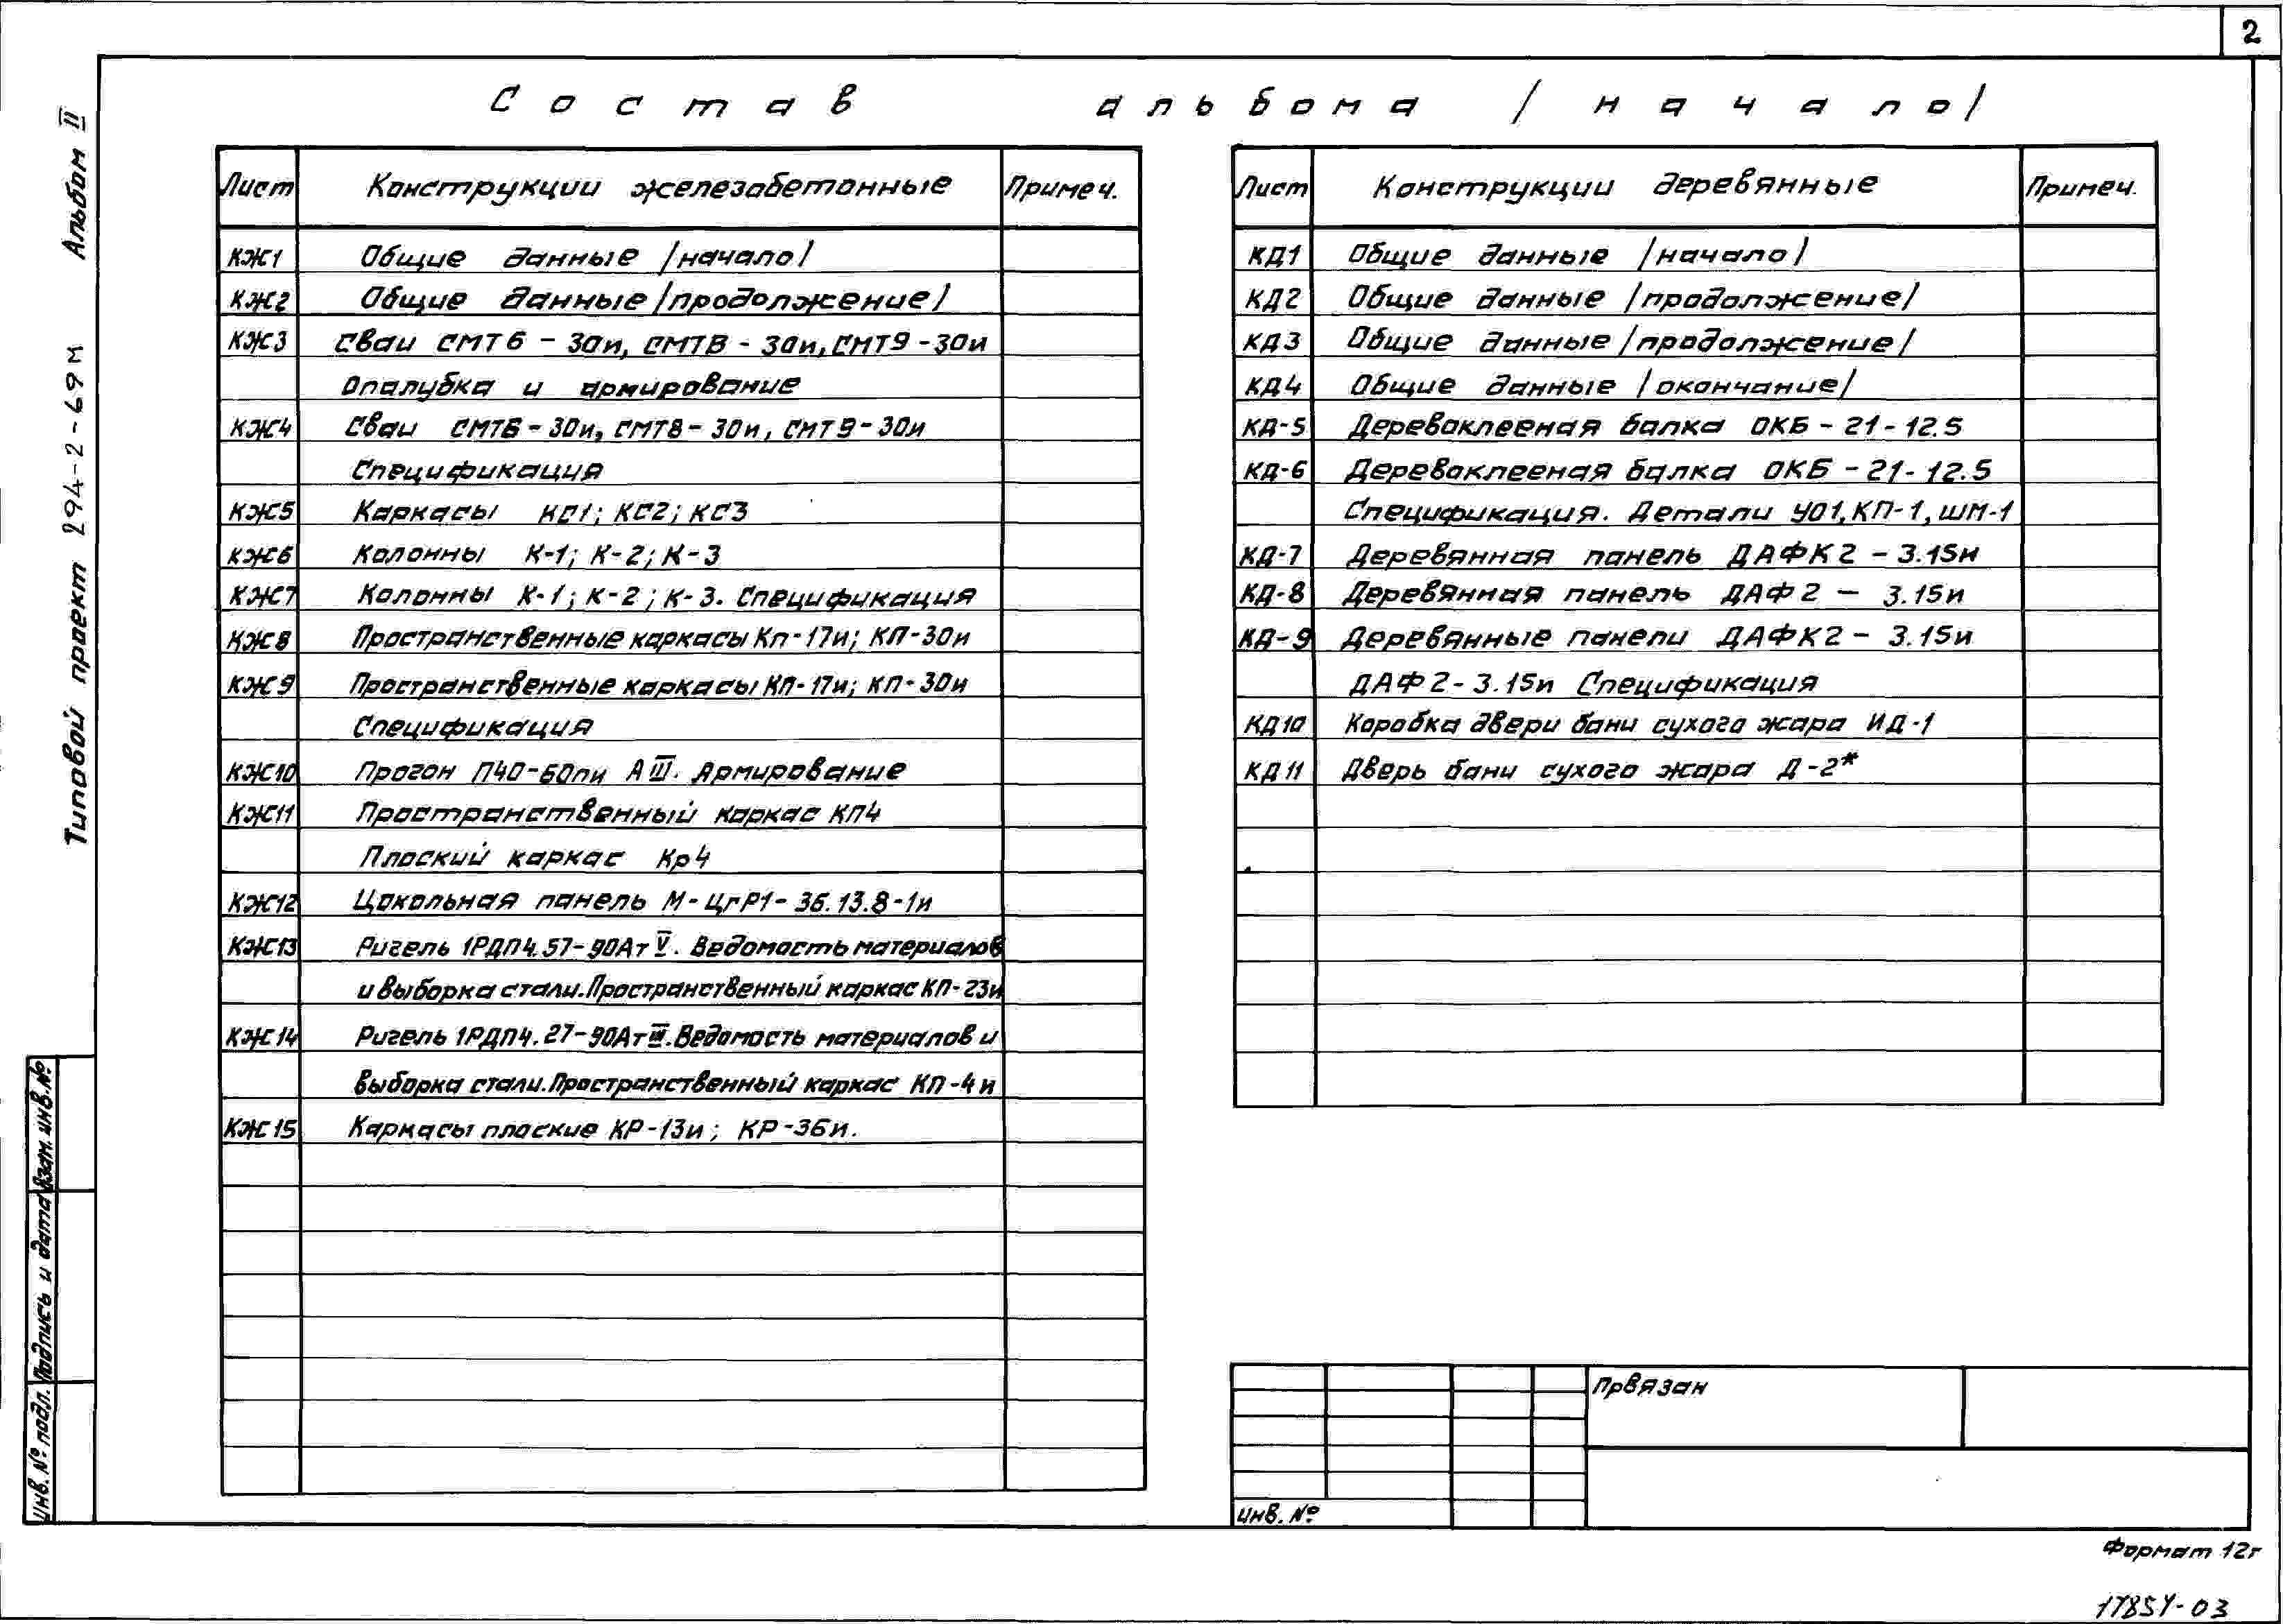 2
Состав альбома /начало/
Типовой проект 294-2-69м Альбом II
Лист Конструкции железобетонные Примеч.
КЖ1 Общие данные /начало/
КЖ2 Общие данные /продолжение/
КЖ3 Сваи СМТ6-30и, СМТ8-30и, СМТ9-30и
Опалубка и армирование
КЖ4 Сваи СМТ6-30и, СМТ8-30и, СМТ9-30и
Спецификация
КЖ5 Каркасы КС1; КС2; КС3
КЖ6 Колонны К-1; К-2; К-3
КЖ7 Колонны К-1; К-2; К-3. Спецификация
КЖ8 Пространственные каркасы Кп-17и; КП-30и
КЖ9 Пространственные каркасы КП-17и; КП-30и
Спецификация
КЖ10 Прогон П40-60пи АIII. Армирование
КЖ11 Пространственный каркас КП4
Плоский каркас Кр4
КЖ12 Цокольная панель М-ЦГР1-36.13.8-1и
КЖ13 Ригель 1РДП4.57-90АтV. Ведомость материалов
и выборка стали. Пространственный каркас КП-23и
КЖ14 Ригель 1РДП4.27-90АтIII. Ведомость материалов и
выборка стали. Пространственный каркас КП-4и
КЖ15 Каркасы плоские КР-13и; КР-36и.
Лист Конструкции деревянные Примеч.
КД1 Общие данные /начало/
КД2 Общие данные /продолжение/
КД3 Общие данные /продолжение/
КД4 Общие данные /окончание/
КД-5 Деревоклееная балка ОКБ-21-12.5
КД-6 Деревоклееная балка ОКБ-21-12.5
Спецификация. Детали УО1, КП-1, ШМ-1
КД-7 Деревянная панель ДАФК2-3.15и
КД-8 Деревянная панель ДАФ2-3.15и
КД-9 Деревянные панели ДАФК2-3.15и
ДАФ2-3.15и Спецификация
КД10 Коробка двери бани сухого жара ИД-1
КД11 Дверь бани сухого жара Д-2*
Инв. № подл. Подпись и дата Взам. инв. №
Првязан
Инв. №
Формат 12г
17854-03